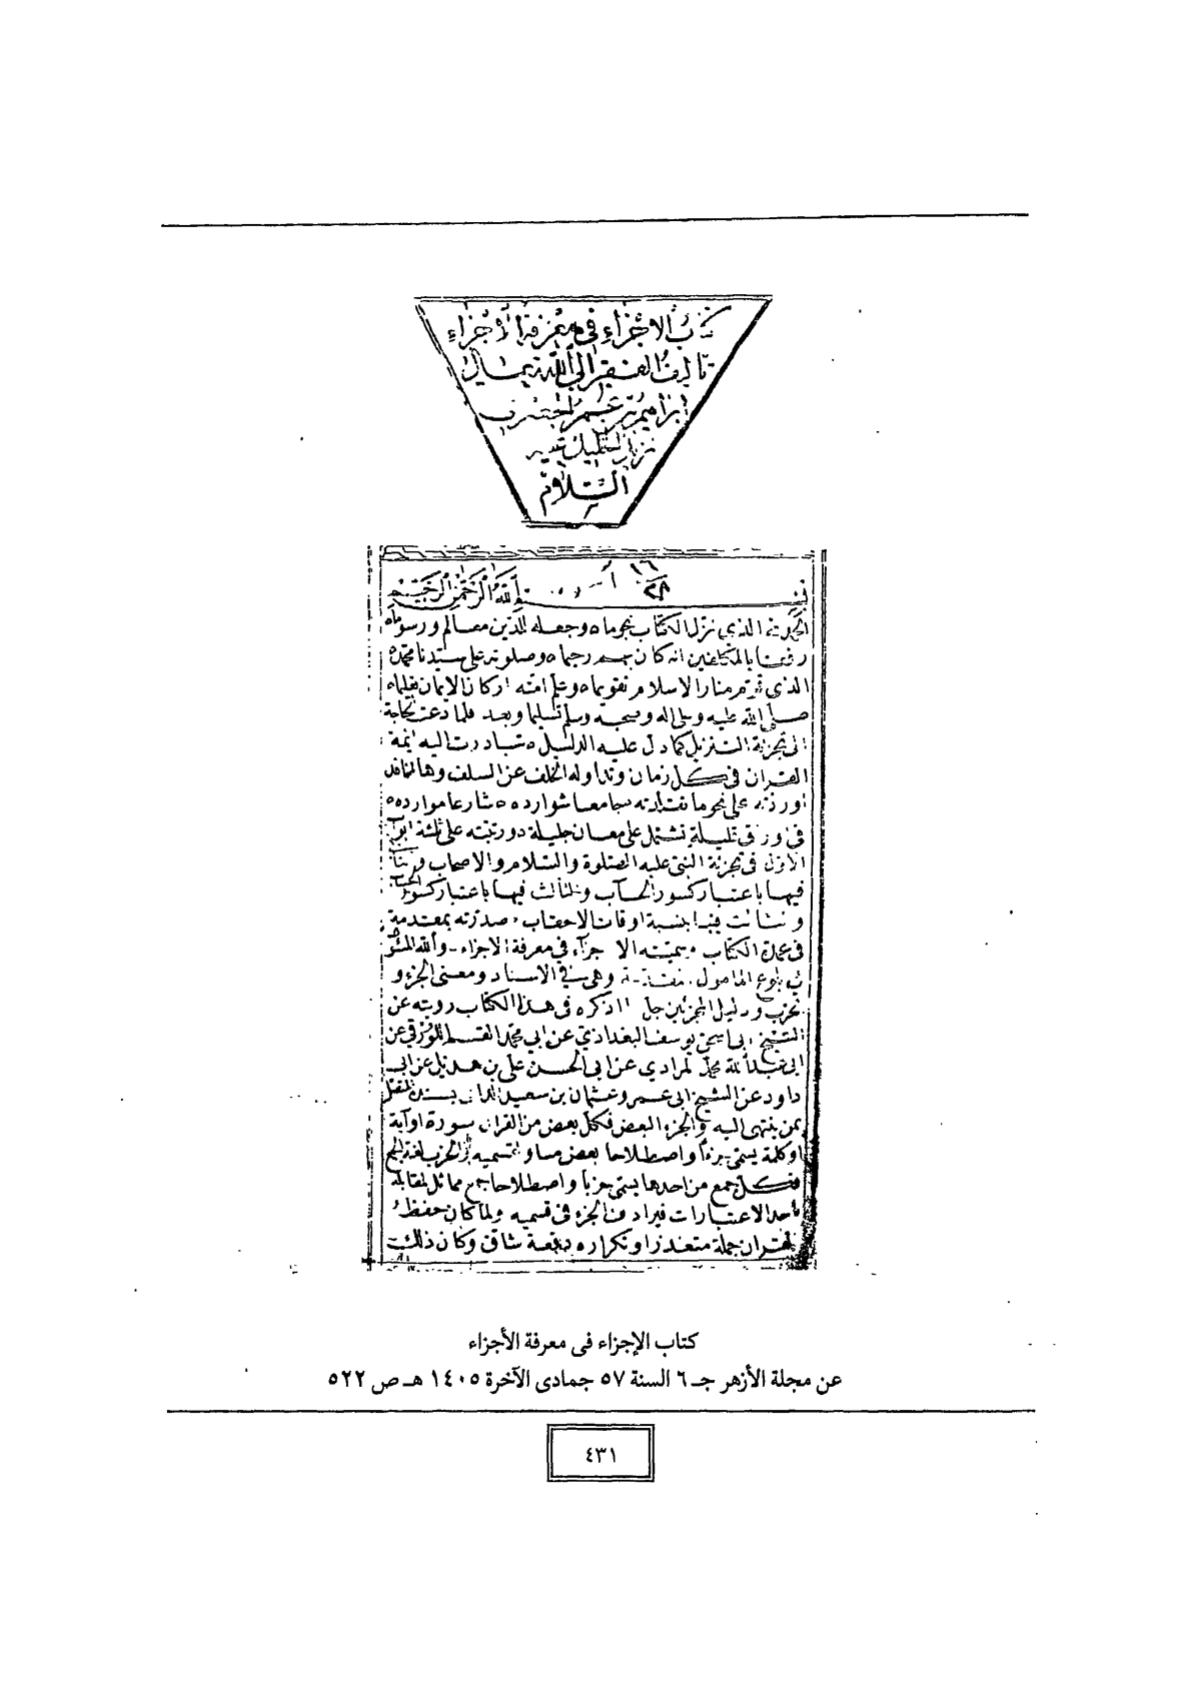 كتاب الاجزاء في معرفة الاجزاء
تاليف الفقير الى الله تعالى
ابراهيم بن عمر الجعبري
نزيل الخليل عليه
السلام
١٦
٢٨
بسم الله الرحمن الرحيم
الحمد لله الذي نزل الكتاب نجوما ه وجعله للذين معالم ورسوما ه
رفقا بالمكلفين انه كان بهم رحيما ه وصلوته على سيدنا محمد ه
الذي قوم منار الاسلام تقويما ه وعلم امته اركان الايمان تعليما ه
صلى الله عليه وعلى اله وصحبه وسلم تسليما وبعد فلما دعت الحاجة
الى تجزية التنزيل كما دل عليه الدليل ه تبادرت اليه ائمة
القران في كل زمان وتداوله الخلف عن السلف وها انا قد
اوردته على نحو ما نقلته جامعا شوارده ه شارعا موارده ه
في اوراق قليلة تشتمل على معان جليلة ورتبته على ثلثة ابواب
الاول في تجزية النبي عليه الصلوة والسلام والاصحاب
فيها باعتبار كسور الحساب والثالث فيها باعتبار كسور
فيها بنسبة اوقات الاحقاب وصدرته بمقدمة
في عمدة الكتاب وسميته الاجزاء في معرفة الاجزاء والله
بلوغ المامول مقدمة وهي في الاسناد ومعنى الجزء و
الحزب ودليل المجزئين جل ما اذكره في هذا الكتاب رويته عن
الشيخ ابي اسحق يوسف البغدادي عن ابي محمد القسم اللورقي عن
ابي عبد الله محمد المرادي عن ابي الحسن علي بن هذيل عن ابي
داود عن الشيخ ابي عمرو عثمان بن سعيد الداني بسنده المتصل
بمن ينتهى اليه والجزء البعض فكل بعض من القران سورة او آية
او كلمة يسمى جزءا واصطلاحا بعض مساو لقسيمه والحزب لغة الجمع
فكل جمع من احدها يسمى حزبا واصطلاحا جمع مماثل لمقابله
باحد الاعتبارات فيرادف الجزء في قسميه ولما كان حفظ
القران جملة متعذرا وتكراره دفعة شاق وكان ذلك
كتاب الإجزاء فى معرفة الأجزاء
عن مجلة الأزهر جـ ٦ السنة ٥٧ جمادى الآخرة ١٤٠٥ هـ ص ٥٢٢
٤٣١